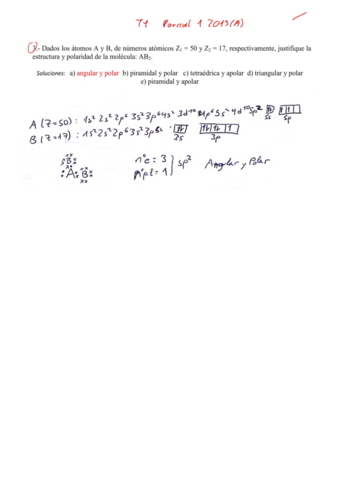 T1 Parcial 1 2013(A)
3.- Dados los átomos A y B, de números atómicos Z₁ = 50 y Z₂ = 17, respectivamente, justifique la
estructura y polaridad de la molécula: AB₂.
Soluciones: a) angular y polar b) piramidal y polar c) tetraédrica y apolar d) triangular y polar
e) piramidal y apolar
A (Z=50) : 1s² 2s² 2p⁶ 3s² 3p⁶ 4s² 3d¹⁰ 4p⁶ 5s² 4d¹⁰ 5p² 5s 5p
B (Z=17) : 1s² 2s² 2p⁶ 3s² 3p⁵ 3s 3p
B
A B
nºe = 3
nºpl = 1 } sp² Angular y Polar